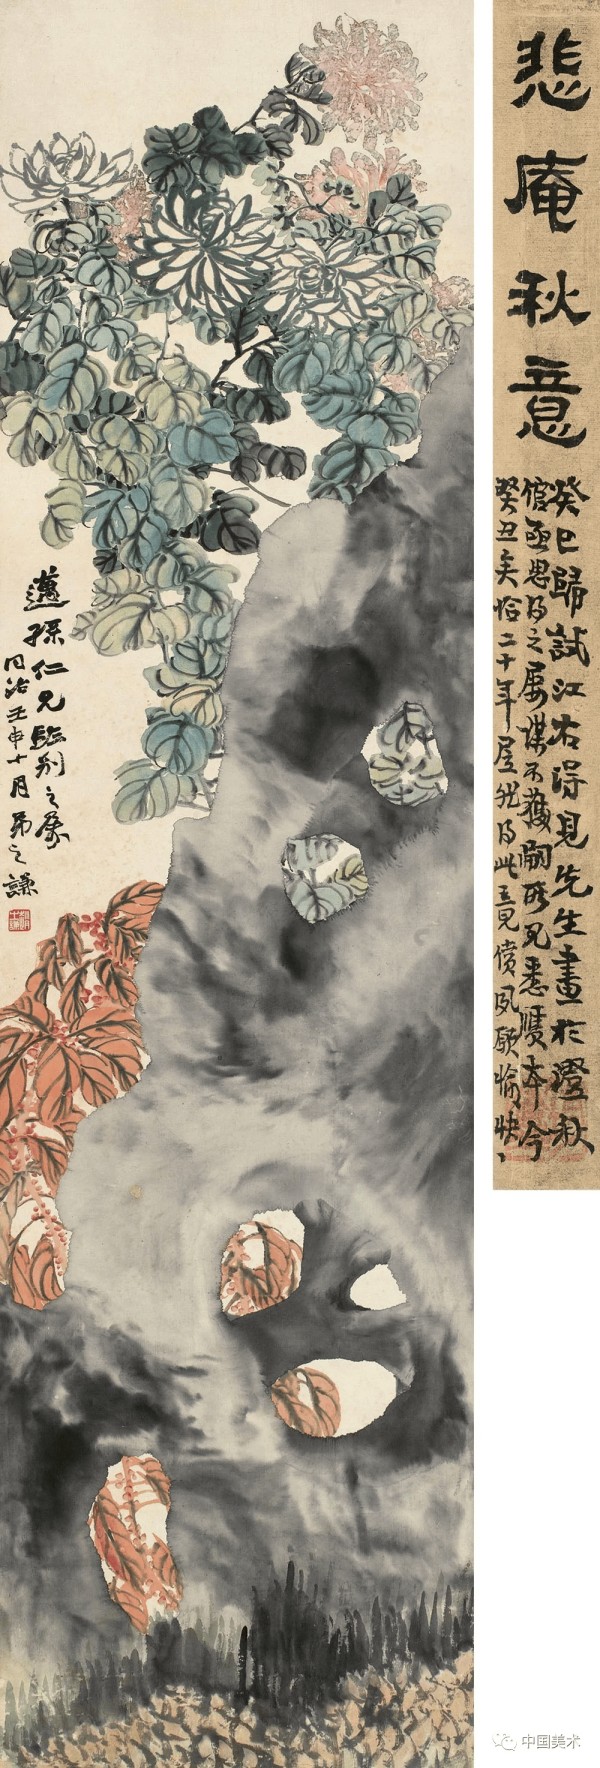 悲庵秋意
癸巳歸試江右得見先生畫於澄秋
館亟思得之屢謀不獲嗣所見悉贋本今
癸丑矣恰二十年屋然得此竟償夙願愉快
邁孫仁兄臨別之屬
同治壬申十月弟之謙
中国美术